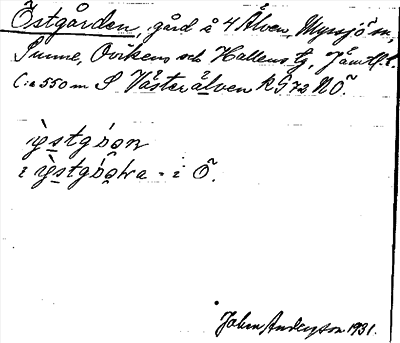 Östgården, gård å 4 Älven, Myssjö sn,
Sunne, Ovikens och Hallens tg, Jämtl. l.
C:a 550 m S Västerälven RG72 NÖ.
ỳstgɷ́ən
i ỳstgɷ́əɴa - i Ö.
John Andersson 1931.